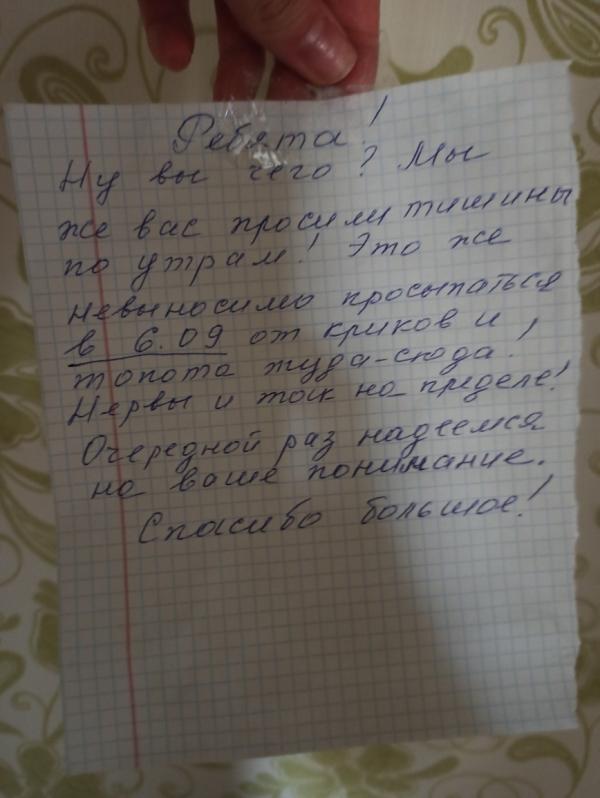 Ребята!
Ну вы чего? Мы
же вас просили тишины
по утрам! Это же
невыносимо просыпаться
в 6.09 от криков и
топота туда-сюда!
Нервы и так на пределе!
Очередной раз надеемся
на ваше понимание.
Спасибо большое!